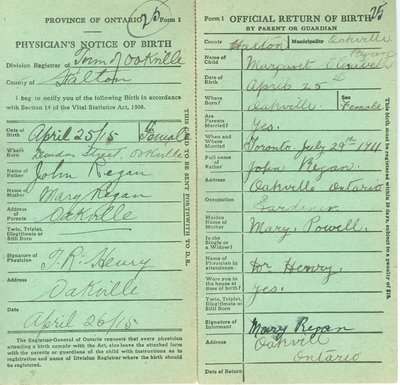 PROVINCE OF ONTARIO
25
Form 1
PHYSICIAN'S NOTICE OF BIRTH
Division Registrar of Town of Oakville
County of Halton
I beg to notify you of the following Birth in accordance
with Section 14 of the Vital Statistics Act, 1908.
Date of Birth April 25/15 Female
Where Born Street, Oakville
Name of Father John Regan
Name of Mother Mary Regan
Address of Parents Oakville
Twin, Triplet, Illegitimate or Still Born
Signature of Physician T. R. Henry
Address Oakville
Date April 26/15
The Registrar-General of Ontario requests that every physician
attending a birth comply with the Act, also leave the attached form
with the parents or guardians of the child with instructions as to
registration and name of Division Registrar where the birth should
be registered.
THIS CARD TO BE SENT FORTHWITH TO D.R.
Form 1 OFFICIAL RETURN OF BIRTH
25
BY PARENT OR GUARDIAN
County Halton Municipality Oakville
Regan
Name of Child Margaret
Date of Birth April 25th
Where Born? Oakville Sex Female
Are Parents Married? Yes.
When and Where Married Toronto July 29th 1911
Full name of Father John Regan.
Address Oakville Ontario
Occupation Gardener
Maiden Name of Mother Mary Powell.
Is she Single or a Widow?
Name of Physician in attendance Dr Henry.
Were you in the house at time of birth? yes.
Twin, Triplet, Illegitimate or Still Born
Signature of Informant Mary Regan
Address Oakvill
Ontario
Date of Return
This birth must be registered within 30 days, subject to a penalty of $10.